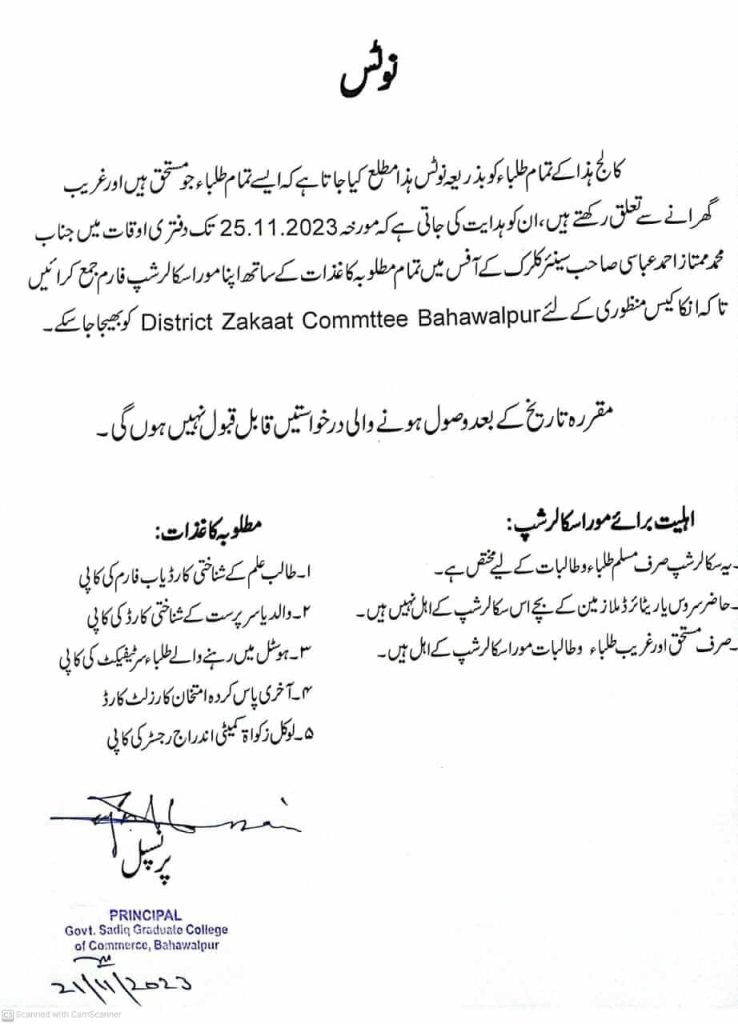 نوٹس
کالج ہذا کے تمام طلباء کو بذریعہ نوٹس ہذا مطلع کیا جاتا ہے کہ ایسے تمام طلباء جو مستحق ہیں اور غریب
گھرانے سے تعلق رکھتے ہیں، ان کو ہدایت کی جاتی ہے کہ مورخہ 25.11.2023 تک دفتری اوقات میں جناب
محمد ممتاز احمد عباسی صاحب سینئر کلرک کے آفس میں تمام مطلوبہ کاغذات کے ساتھ اپنا مورا سکالرشپ فارم جمع کرائیں
تا کہ انکا کیس منظوری کے لئے District Zakaat Commttee Bahawalpur کو بھیجا جا سکے۔
مقررہ تاریخ کے بعد وصول ہونے والی درخواستیں قابل قبول نہیں ہوں گی۔
اہلیت برائے مورا سکالرشپ:
۔یہ سکالرشپ صرف مسلم طلباء و طالبات کے لیے مختص ہے۔
۔حاضر سروس یا ریٹائرڈ ملازمین کے بچے اس سکالرشپ کے اہل نہیں ہیں۔
۔صرف مستحق اور غریب طلباء و طالبات مورا سکالرشپ کے اہل ہیں۔
مطلوبہ کاغذات:
۱۔طالب علم کے شناختی کارڈ یا ب فارم کی کاپی
۲۔والد یا سرپرست کے شناختی کارڈ کی کاپی
۳۔ہوسٹل میں رہنے والے طلباء سرٹیفیکٹ کی کاپی
۴۔آخری پاس کردہ امتحان کا رزلٹ کارڈ
۵۔لوکل زکواۃ کمیٹی اندراج رجسٹر کی کاپی
پرنسپل
PRINCIPAL
Govt. Sadiq Graduate College
of Commerce, Bahawalpur
21/11/2023
CS Scanned with CamScanner